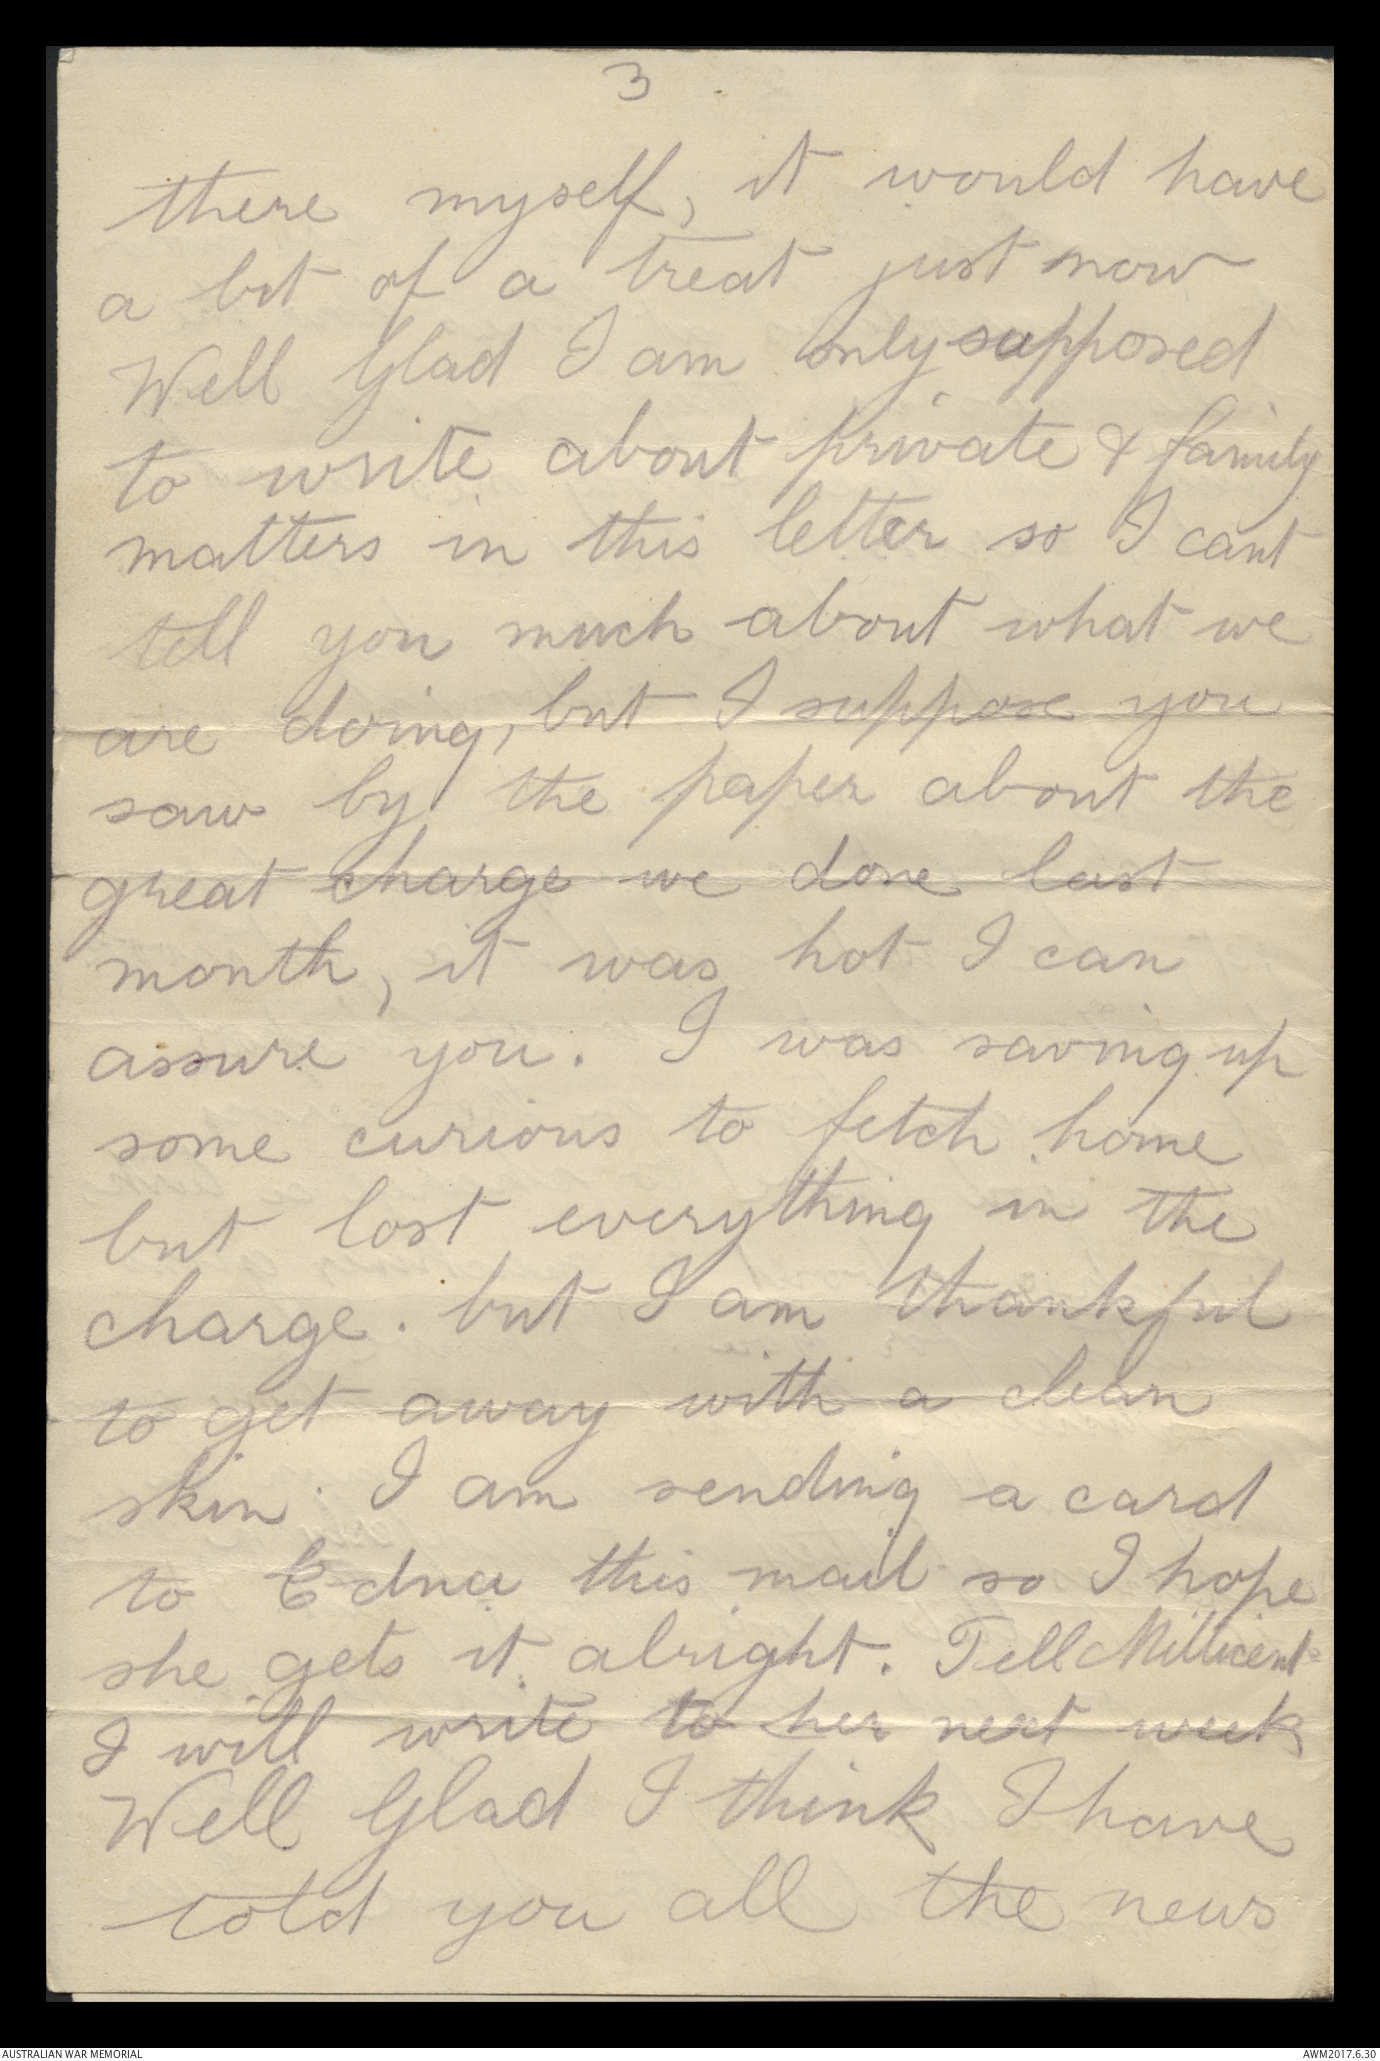 3
there myself, it would have
a bit of a treat just now
Well Glad I am only supposed
to write about private & family
matters in this letter so I cant
tell you much about what we
are doing, but I suppose you
saw by the paper about the
great charge we done last
month, it was hot I can
assure you. I was saving up
some curious to fetch home
but lost everything in the
charge. but I am thankful
to get away with a clean
skin. I am sending a card
to Edna this mail so I hope
she gets it alright. Tell Millicent
I will write to her next week
Well Glad I think I have
told you all the news
AUSTRALIAN WAR MEMORIAL
AWM2017.6.30